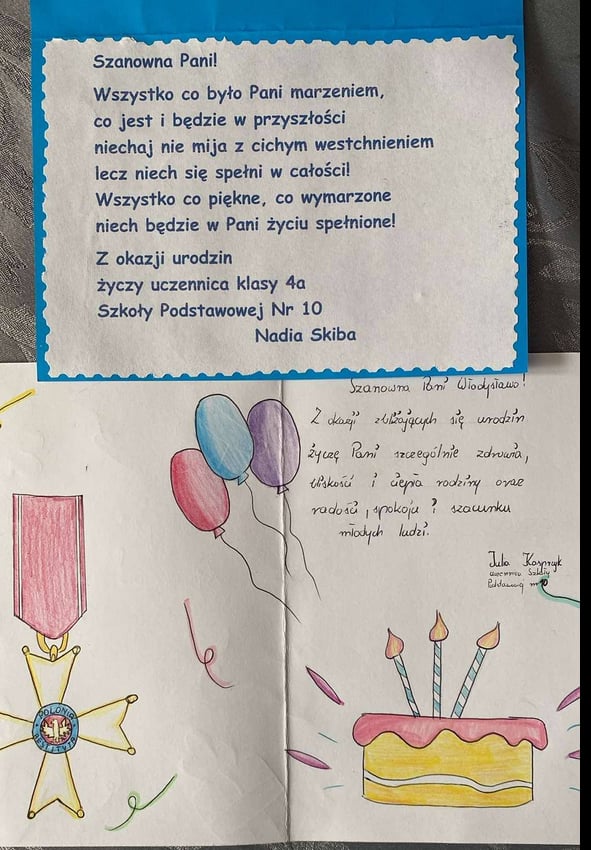 Szanowna Pani!
Wszystko co było Pani marzeniem,
co jest i będzie w przyszłości
niechaj nie mija z cichym westchnieniem
lecz niech się spełni w całości!
Wszystko co piękne, co wymarzone
niech będzie w Pani życiu spełnione!
Z okazji urodzin
życzy uczennica klasy 4a
Szkoły Podstawowej Nr 10
Nadia Skiba
Szanowna Pani Władysławo!
Z okazji zbliżających się urodzin
życzę Pani szczególnie zdrowia,
bliskości i ciepła rodziny oraz
radości, spokoju i szacunku
młodych ludzi.
Julia Kasprzyk
uczennica Szkoły
Podstawowej nr 10
POLONIA
RESTITUTA